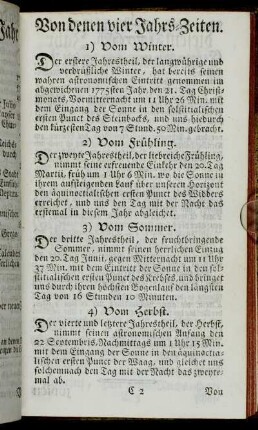 Von denen vier Jahrs-Zeiten.
1) Vom Winter.
Der erstere Jahrestheil, der langwührige und
verdrüßliche Winter, hat bereits seinen
wahren astronomischen Eintritt genommen im
abgewichenen 1775ten Jahr den 21. Tag Christ-
monats, Vormitternacht um 11 Uhr 26 Min. mit
dem Eingang der Sonne in den solstitialischen
ersten Punct des Steinbocks, und uns hiedurch
den kürzesten Tag von 7 Stund. 50 Min. gebracht.
2) Vom Frühling.
Der zweyte Jahrestheil, der liebreiche Frühling,
nimmt seine erfreuende Einkehr den 20. Tag
Martii, früh um 1 Uhr 6 Min. wo die Sonne in
ihrem aufsteigenden Lauf über unsern Horizont
den äquinoctialischen ersten Punct des Widders
erreichet, und uns den Tag mit der Nacht das
erstemal in diesem Jahr abgleichet.
3) Vom Sommer.
Der dritte Jahrestheil, der fruchtbringende
Sommer, nimmt seinen herrlichen Einzug
den 20. Tag Junii, gegen Mitternacht um 11 Uhr
37 Min. mit dem Eintritt der Sonne in den sol-
stitialischen ersten Punct des Krebses, und bringet
uns durch ihren höchsten Bogenlauf den längsten
Tag von 16 Stunden 10 Minuten.
4) Vom Herbst.
Der vierte und letzere Jahrestheil, der Herbst,
nimmt seinen astronomischen Anfang den
22 Septembris, Nachmittags um 1 Uhr 13 Min.
mit dem Eingang der Sonne in den äquinoctia-
lischen ersten Punct der Waag, und gleichet uns
solchemnach den Tag mit der Nacht das zweyte-
mal ab.
C 2 Von